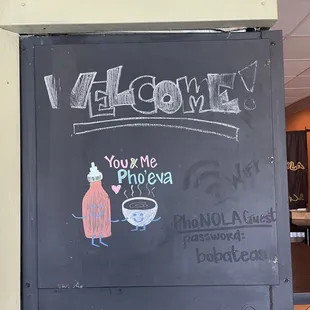 WELCOME!
You & Me
Pho'eva
WiFi
PhoNOLAGuest
password:
bobatea